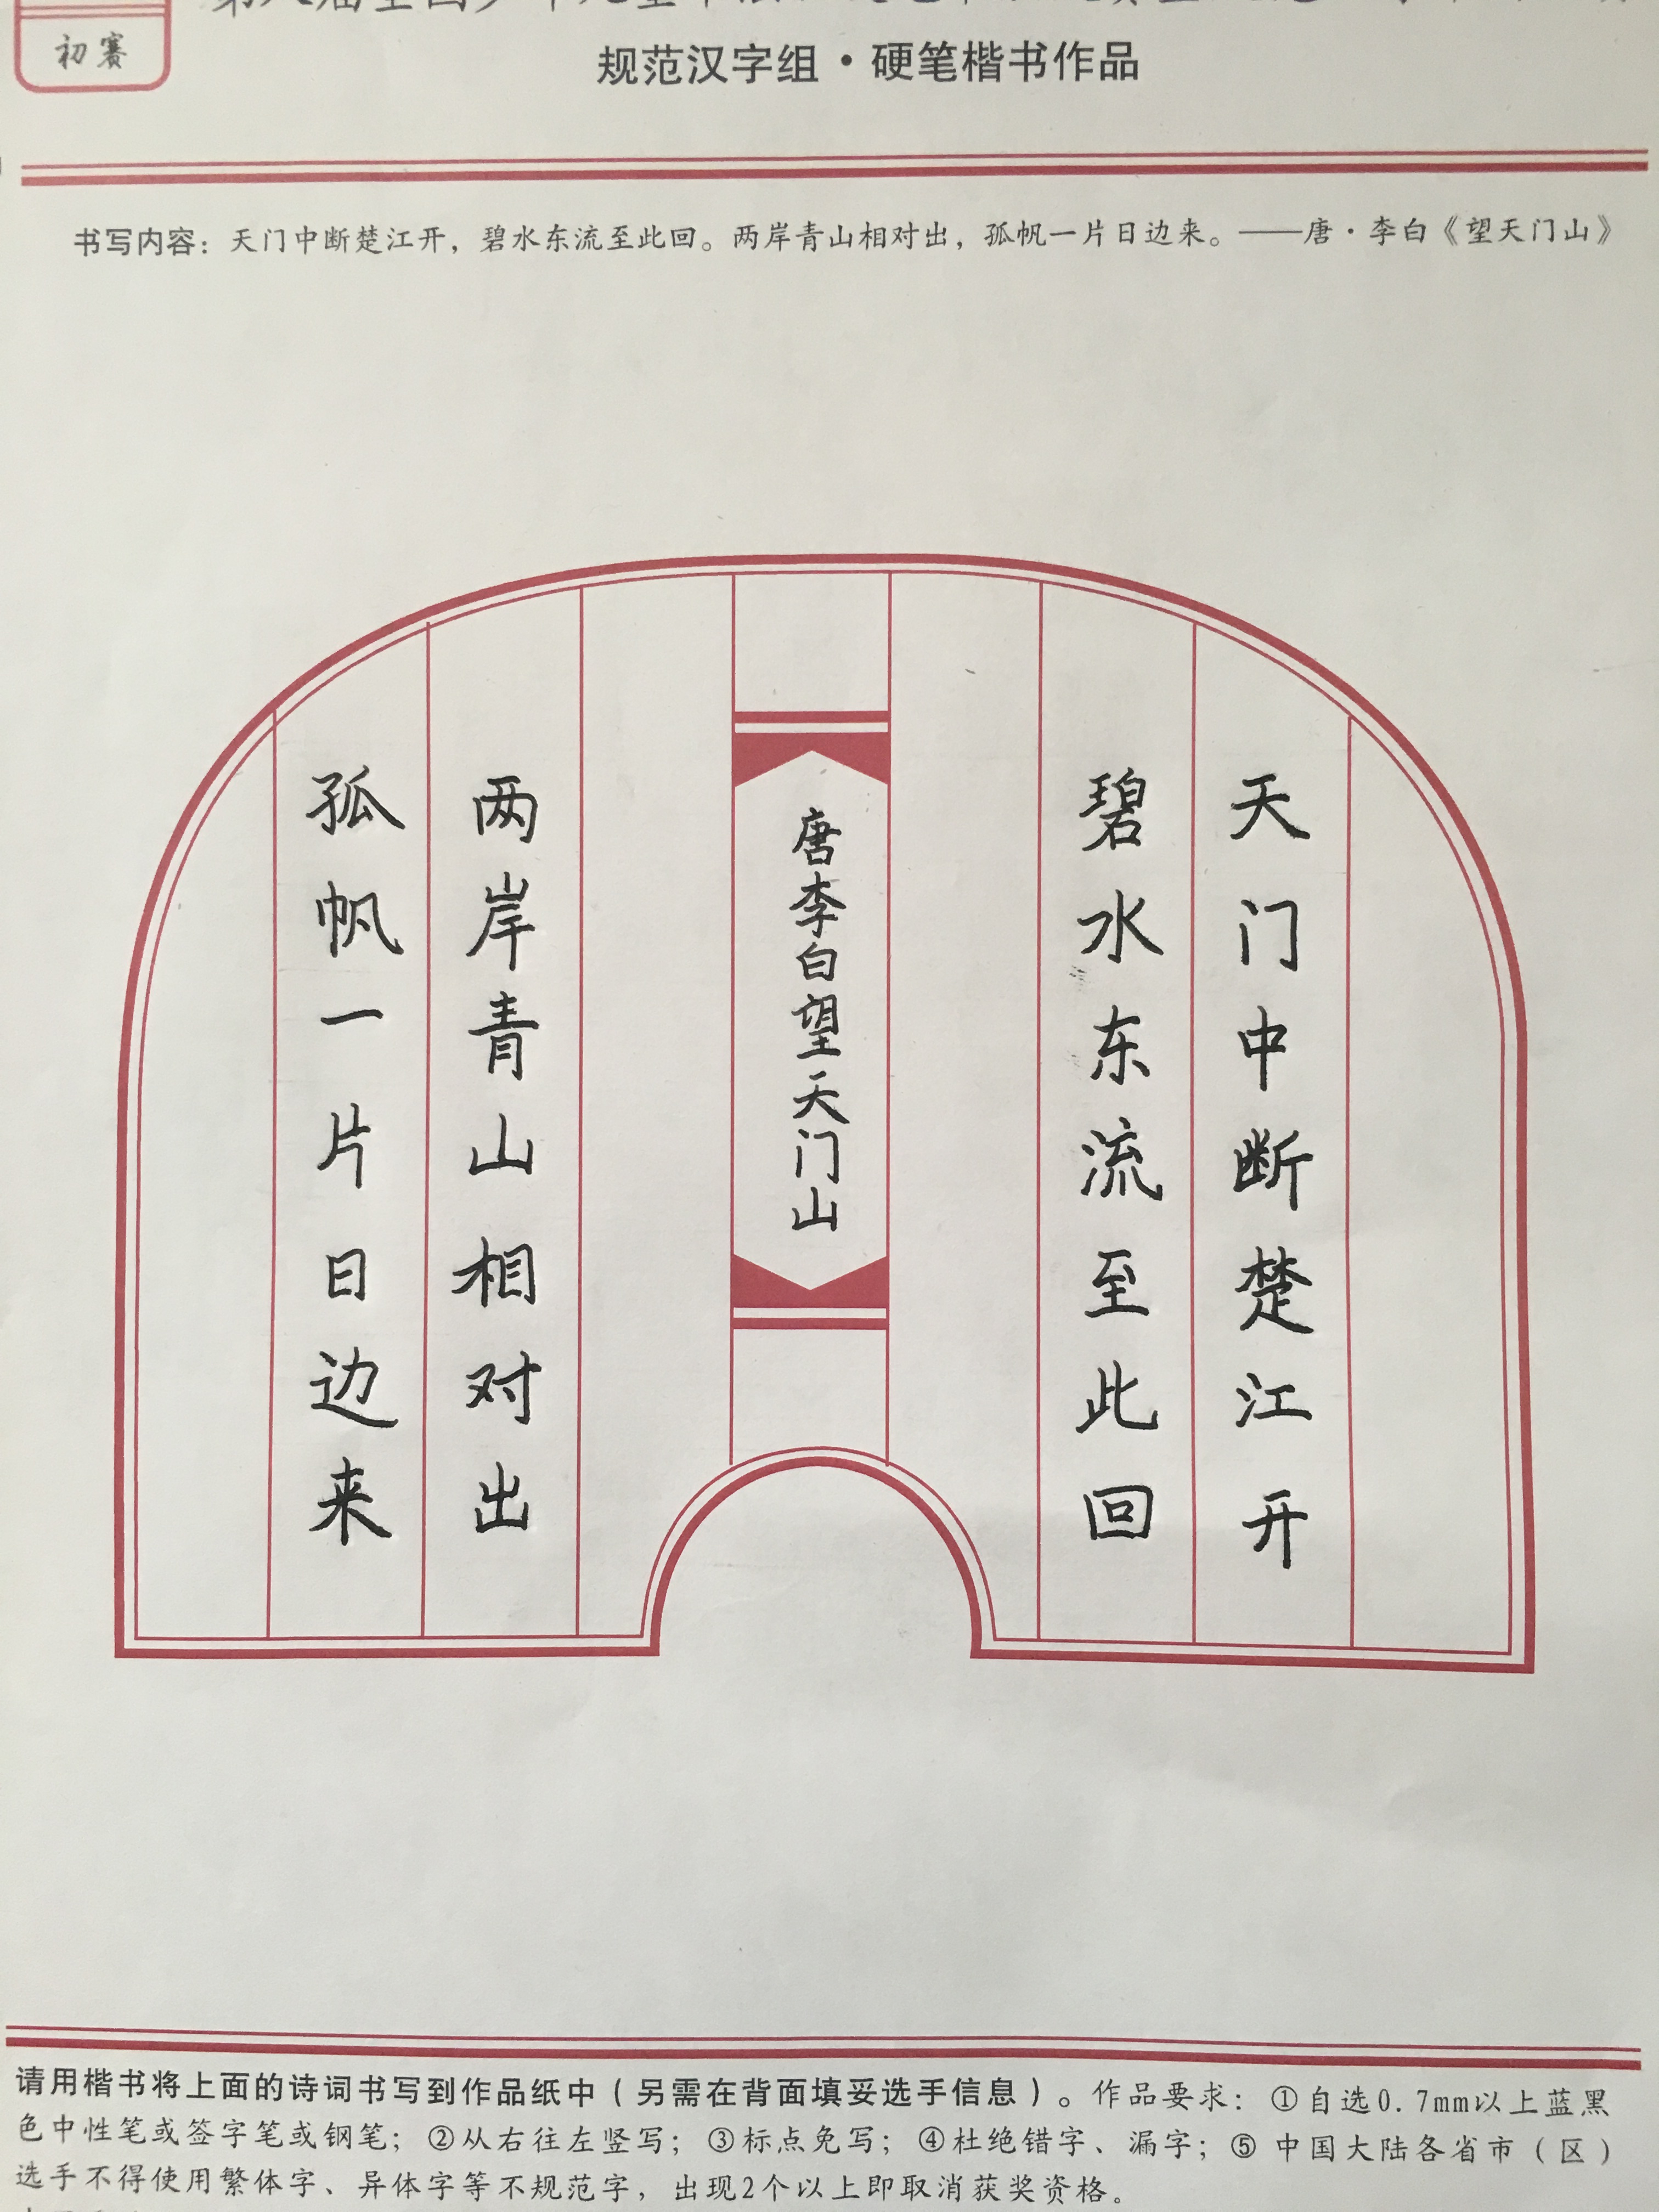 初赛
规范汉字组·硬笔楷书作品
书写内容：天门中断楚江开，碧水东流至此回。两岸青山相对出，孤帆一片日边来。——唐·李白《望天门山》
天门中断楚江开
碧水东流至此回
唐李白望天门山
两岸青山相对出
孤帆一片日边来
请用楷书将上面的诗词书写到作品纸中（另需在背面填妥选手信息）。作品要求：①自选0.7mm以上蓝黑
色中性笔或签字笔或钢笔；②从右往左竖写；③标点免写；④杜绝错字、漏字；⑤中国大陆各省市（区）
选手不得使用繁体字、异体字等不规范字，出现2个以上即取消获奖资格。